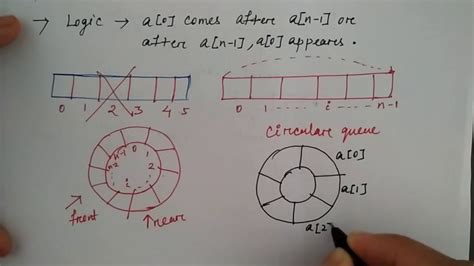 → Logic → a[0] comes after a[n-1] or
after a[n-1], a[0] appears.
0 1 2 3 4 5
0 1 ------ i ------ n-1
Circulare queue
n-1 0 1
n-2 2
i
a[0]
a[1]
a[2
front
reare